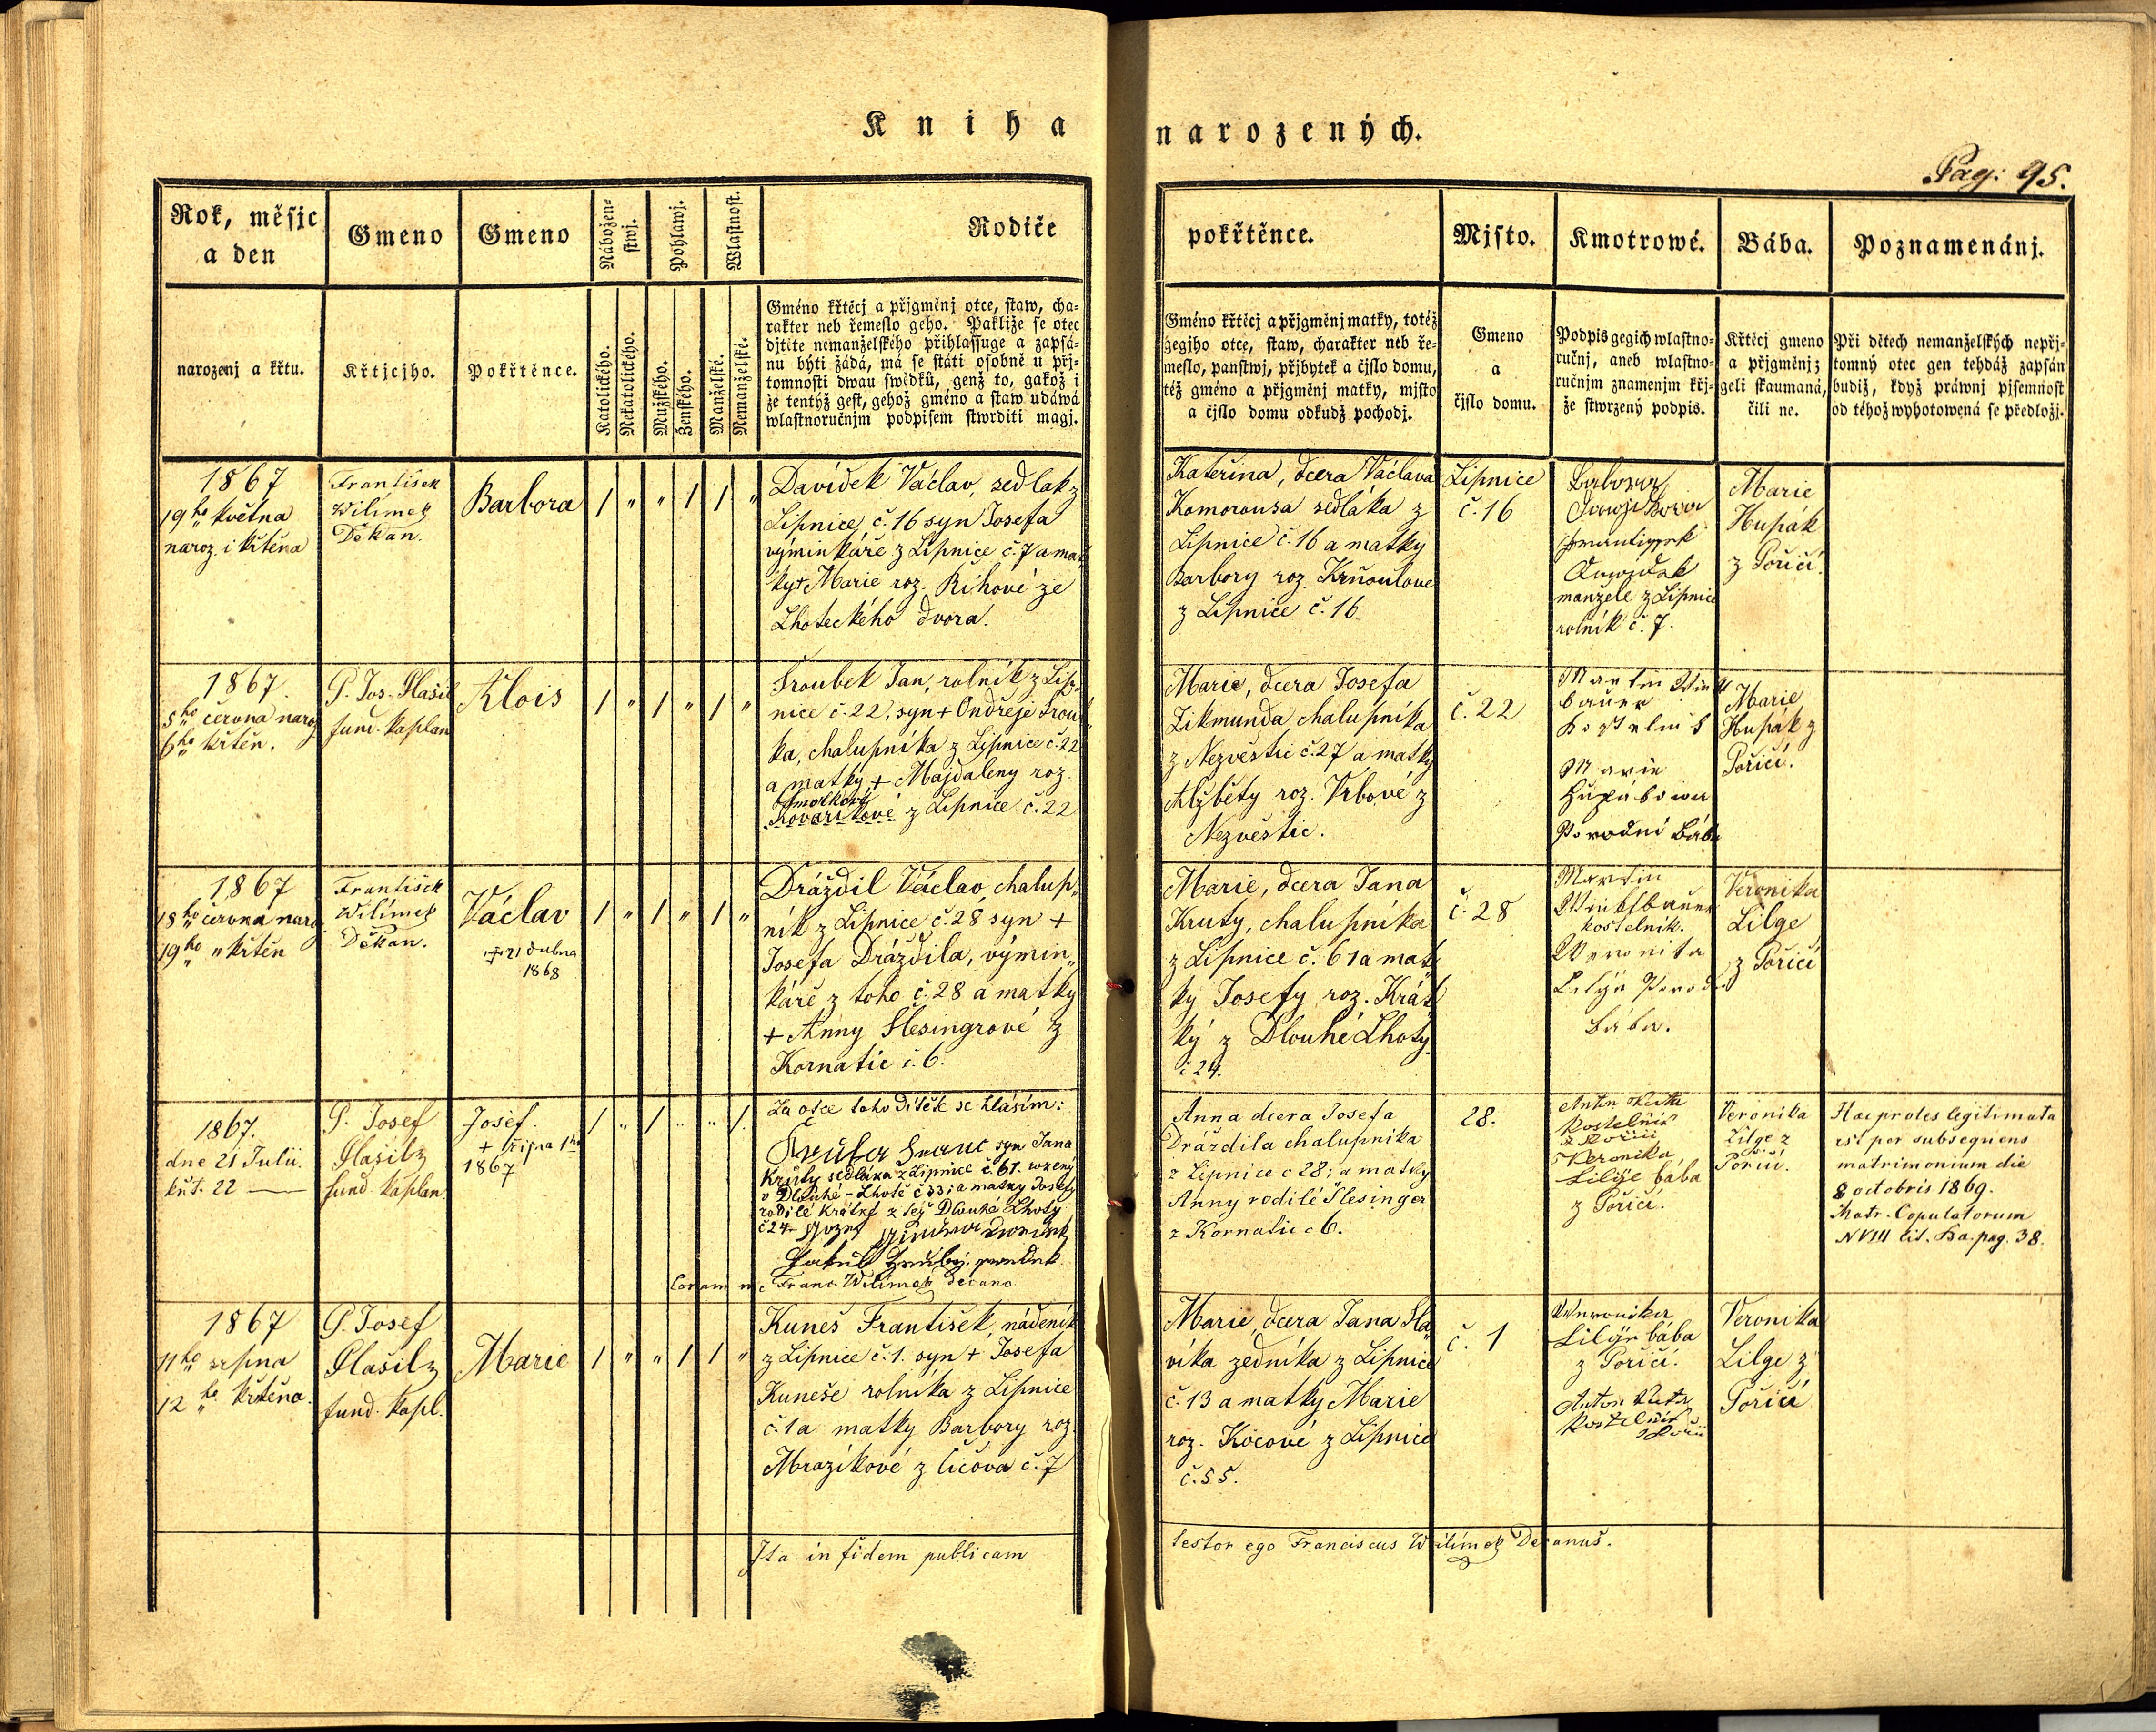 Kniha narozených.
Pag: 95.
Rok, měsjc
a den
Gmeno
Gmeno
Nábožen-
stwj.
Pohlawj.
Wlastnost.
Rodiče
pokřtěnce.
Mjsto.
Kmotrowé.
Bába.
Poznamenánj.
narozenj a křtu.
Křtjcjho.
Pokřtěnce.
Katolického.
Nekatolického.
Mužského.
Ženského.
Manželské.
Nemanželské.
Gméno křtěcj a přjgměnj otce, staw, cha-
rakter neb řemeslo geho. Pakliže se otec
djtěte nemanželského přihlassuge a zapsá-
nu býti žádá, má se státi osobně u přj-
tomnosti dwau swědků, genž to, gakož i
že tentýž gest, gehož gméno a staw udáwá
wlastnoručnjm podpisem stwrditi magj.
Gméno křtěcj a přjgměnj matky, totéž
gegjho otce, staw, charakter neb ře-
meslo, panstwj, přjbytek a čjslo domu,
též gméno a přjgměnj matky, mjsto
a čjslo domu odkudž pochodj.
Gmeno
a
čjslo domu.
Podpis gegich wlastno-
ručnj, aneb wlastno-
ručnjm znamenjm křj-
že stwrzený podpis.
Křtěcj gmeno
a přjgměnj;
geli skaumaná,
čili ne.
Při dětech nemanželských nepřj-
tomný otec gen tehdáž zapsán
budiž, když práwnj pjsemnost
od téhož wyhotowená se předložj.
1867
19ho května
naroz. i křtěna
František
Wilímek
Děkan.
Barbora
/ " " / / "
Davídek Václav, sedlák z
Lipnice č. 16 syn Josefa
výminkáře z Lipnice č. 7 a mat
ky + Marie roz. Říhové ze
Lhoteckého dvora.
Kateřina, dcera Václava
Komorousa sedláka z
Lipnice č. 16 a matky
Barbory roz. Krňoulove
z Lipnice č. 16
Lipnice
č. 16
manžele z Lipnice
rolník č. 7.
Marie
Hupák
z Poříčí.
1867.
5ho června naroz
6ho křtěn.
P. Jos. Hlašil
fund. kaplan
Alois
/ " / " / "
Šroubek Jan, rolník z Lip
nice č. 22, syn + Ondřeje Šrou
ka, chalupníka z Lipnice č. 22
a matky + Majdaleny roz.
Smolkové
Kovaříkové z Lipnice č. 22
Marie, dcera Josefa
Zikmunda chalupníka
z Nezvěstic č. 27 a matky
Alžběty roz. Vrbové z
Nezvěstic.
č. 22
Martin
Kostelník
Marie
Hupákowa
Porodní Bába
Marie
Hupák z
Poříčí.
1867
18ho června naroz
19ho " křtěn
František
Wilímek
Děkan.
Václav
+ 21 dubna
1868
/ " / " / "
Dráždil Václav, chalup„
ník z Lipnice č. 28 syn +
Josefa Dráždila, výmin„
káře z toho č. 28 a matky
+ Anny Šlesingrové z
Kornatic č. 6.
Marie, dcera Jana
Kruty, chalupníka
z Lipnice č. 61 a mat
ky Josefy roz. Krát
ký z Dlouhé Lhoty
č 24.
č. 28
Martin
kostelník.
Weronika
Lilge Porodní
Bába.
Veronika
Lilge
z Poříčí
1867.
dne 21 Julii.
křt. 22 —
P. Josef
Hlašil
fund. kaplan.
Josef.
+ října 1ho
1867
/ " / " " /.
Za otce toho dítěte se hlásím:
syn Jana
Kruty sedláka z Lipnice č. 61. wzený
v Dlouhé-Lhotě č 33; a matky Josefy
rodilé Krátké z tej Dlouhé Lhoty
č 24
Coram me Franc. Wilímek decano.
Anna dcera Josefa
Dráždila chalupníka
z Lipnice č 28; a matky
Anny rodilé Šlesinger
z Kornatic č 6.
28.
Kostelník
z Poříčí
Veronika
Lilge bába
z Poříčí.
Veronika
Lilge z
Poříčí.
Haec proles legitimata
est per subsequens
matrimonium die
8 octobris 1869.
Matr. Copulatorum
N VIII lit. Ba. pag. 38.
1867
11ho srpna
12ho křtěna.
P. Josef
Hlašil
fund. kapl.
Marie
/ " " / / "
Kuneš František, nádeník
z Lipnice č. 1. syn + Josefa
Kuneše rolníka z Lipnice
č. 1 a matky Barbory roz.
Mrazíkové z Číčova č. 7
Marie, dcera Jana Sla„
víka zedníka z Lipnice
č. 13 a matky Marie
roz. Kocové z Lipnice
č. 55.
č. 1
Weronika
Lilge bába
z Poříčí.
Kostelník
z Poříčí
Veronika
Lilge z
Poříčí
Ita in fidem publicam testor ego Franciscus Wilímek Decanus.